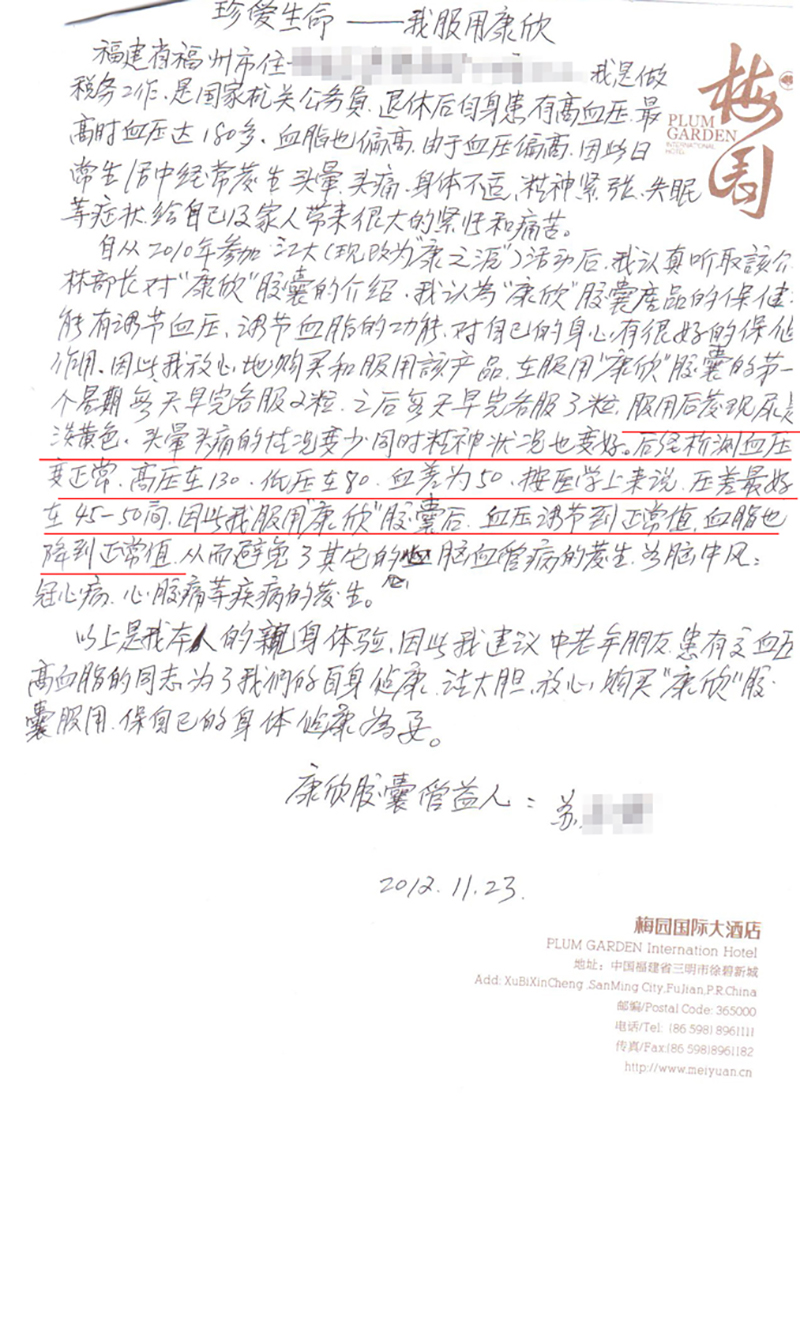 珍爱生命——我服用康欣
福建省福州市住 我是做
税务工作、是国家机关公务員、退休后自身患有高血压、最
高时血压达180多、血脂也偏高、由于血压偏高、因此日
常生活中经常发生头暈、头痛、身体不适、精神紧张、失眠
等症状、给自己及家人带来很大的紧忙和痛苦。
自从2010年参加江大(现改为"康之源")活动后、我认真听取該介
林部长对"康欣"胶囊的介绍、我认为"康欣"胶囊產品的保健
能有调节血压、调节血脂的功能、对自己的身心有很好的保健
作用、因此我放心地购买和服用該产品、在服用"康欣"胶囊的第一
个星期每天早完各服2粒、之后每天早完各服3粒、服用后发现尿是
淡黄色、头暈头痛的情况变少同时精神状况也变好。后经析测血压
变正常、高压在130、低压在80、血差为50、按医学上来说、压差最好
在45-50间、因此我服用"康欣"胶囊后、血压调节到正常值、血脂也
降到正常值、从而避免了其它的心脑血管病的发生、为脑中风、
冠心病、心胶痛等疾病的发生。
以上是我本人的親身体验、因此我建议中老年朋友、患有高血压
高血脂的同志、为了我們的自身健康、请大胆、放心、购买"康欣"胶
囊服用、保自己的身体健康為妥。
康欣胶囊受益人:苏
2012.11.23.
梅园
PLUM
GARDEN
INTERNATIONAL
HOTEL
梅园国际大酒店
PLUM GARDEN Internation Hotel
地址:中国福建省三明市徐碧新城
Add: XuBiXinCheng .SanMing City,FuJian,P.R.China
邮编/Postal Code: 365000
电话/Tel: (86 598) 8961111
传真/Fax:(86 598)8961182
http://www.meiyuan.cn